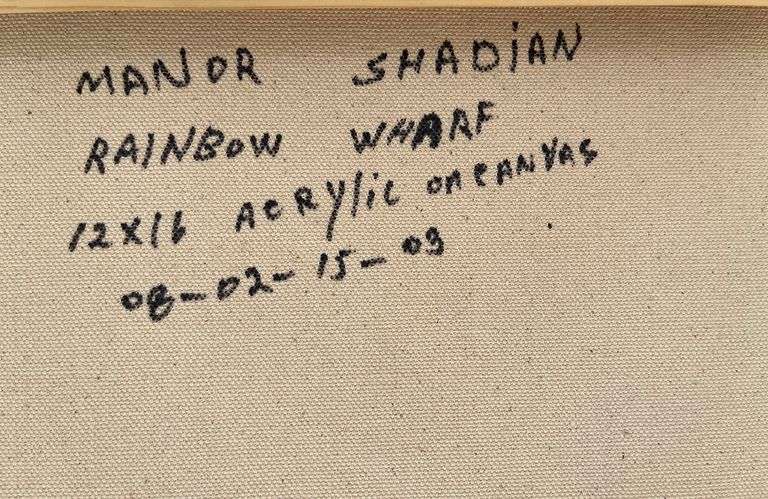 MANOR SHADIAN
RAINBOW WHARF
12X16 ACRYLIC ON CANVAS
08-02-15-03